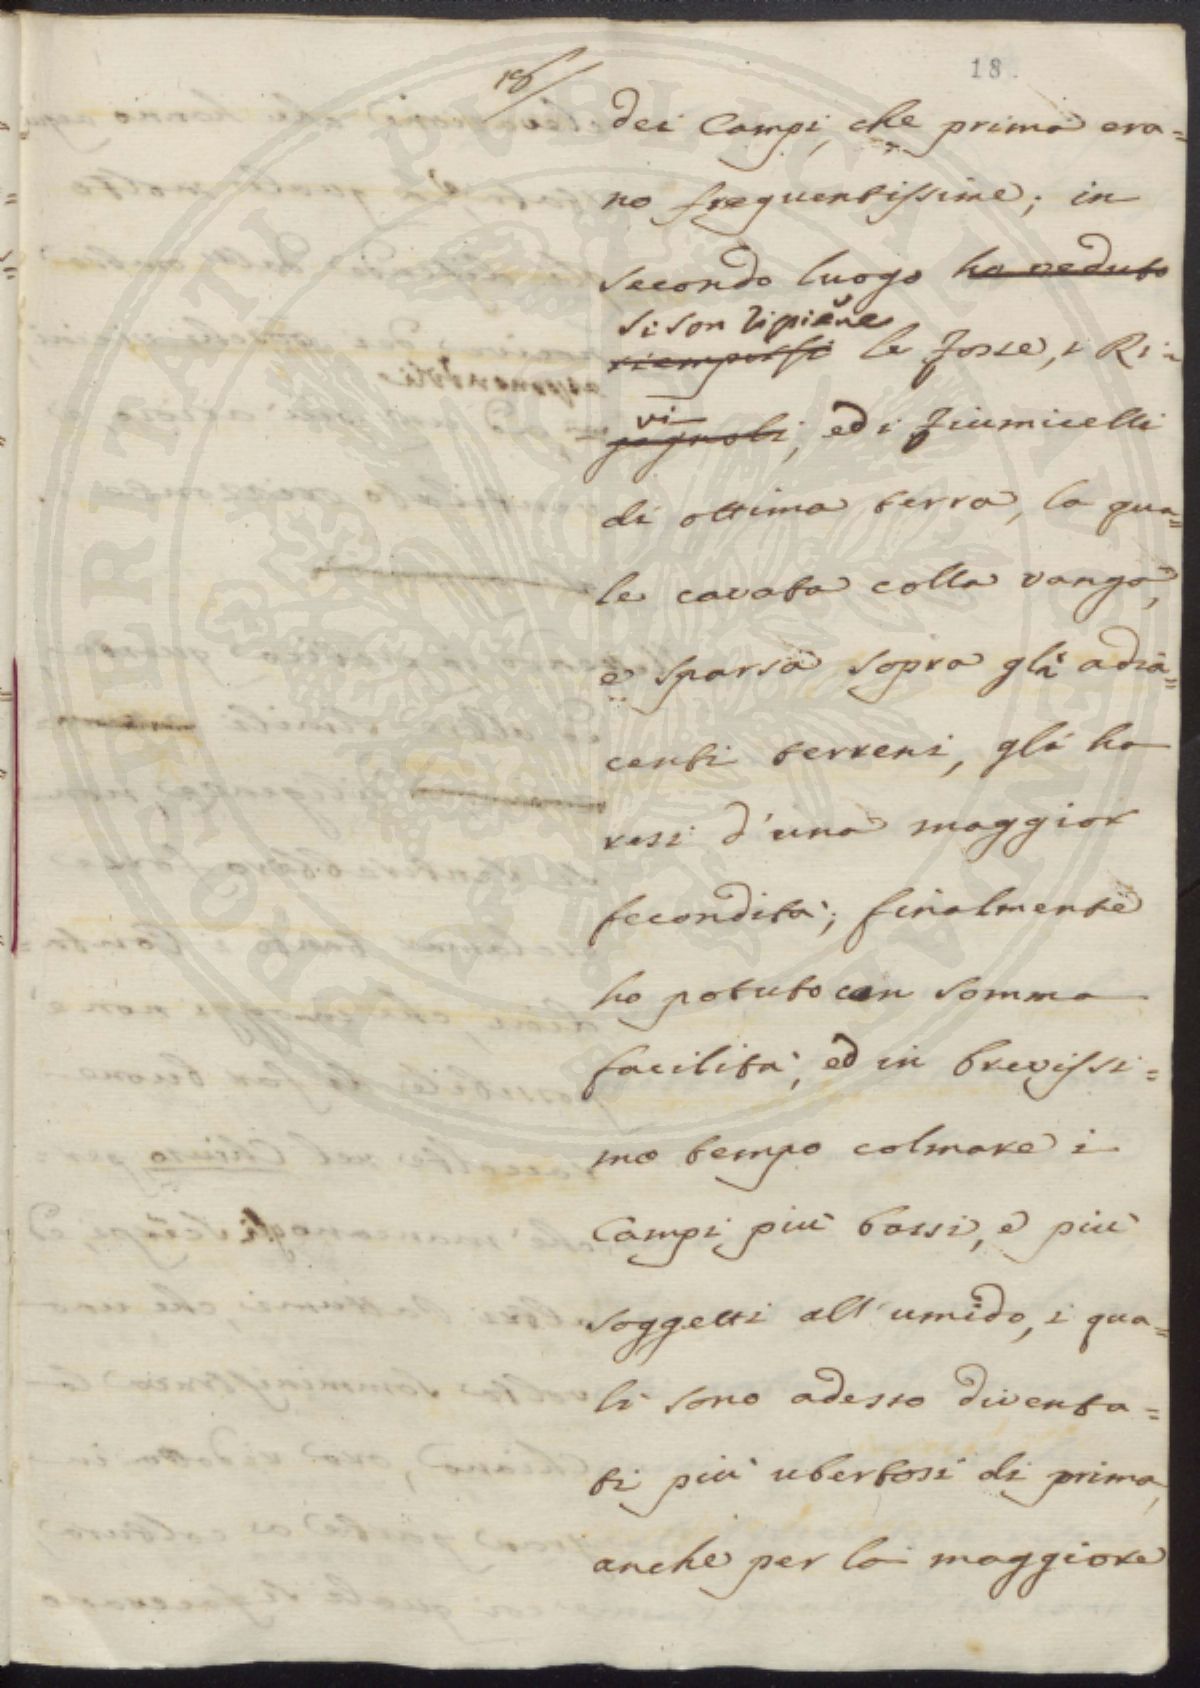 18
18.
dei Campi, che prima era=
no frequentissime; in
secondo luogo ho veduto
si son ripiene
riempirsi le Fosse, i Ri=
vi
gagnoli, ed i Fiumicelli
di ottima terra, la qua=
le cavata colla vanga,
e sparsa sopra gli adia=
centi terreni, gli ha
resi d'una maggior
fecondità; finalmente
ho potuto con somma
facilità, ed in brevissi=
mo tempo colmare i
Campi più bassi, e più
soggetti all'umido, i qua=
li sono adesso diventa=
ti più ubertosi di prima,
anche per la maggiore
PROSPERITATI PUBLICAE AUGENDAE